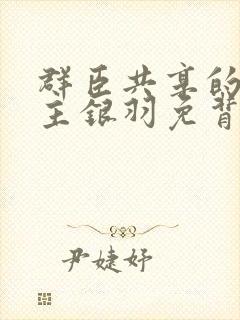 群臣共享的
主银羽免背
尹婕妤